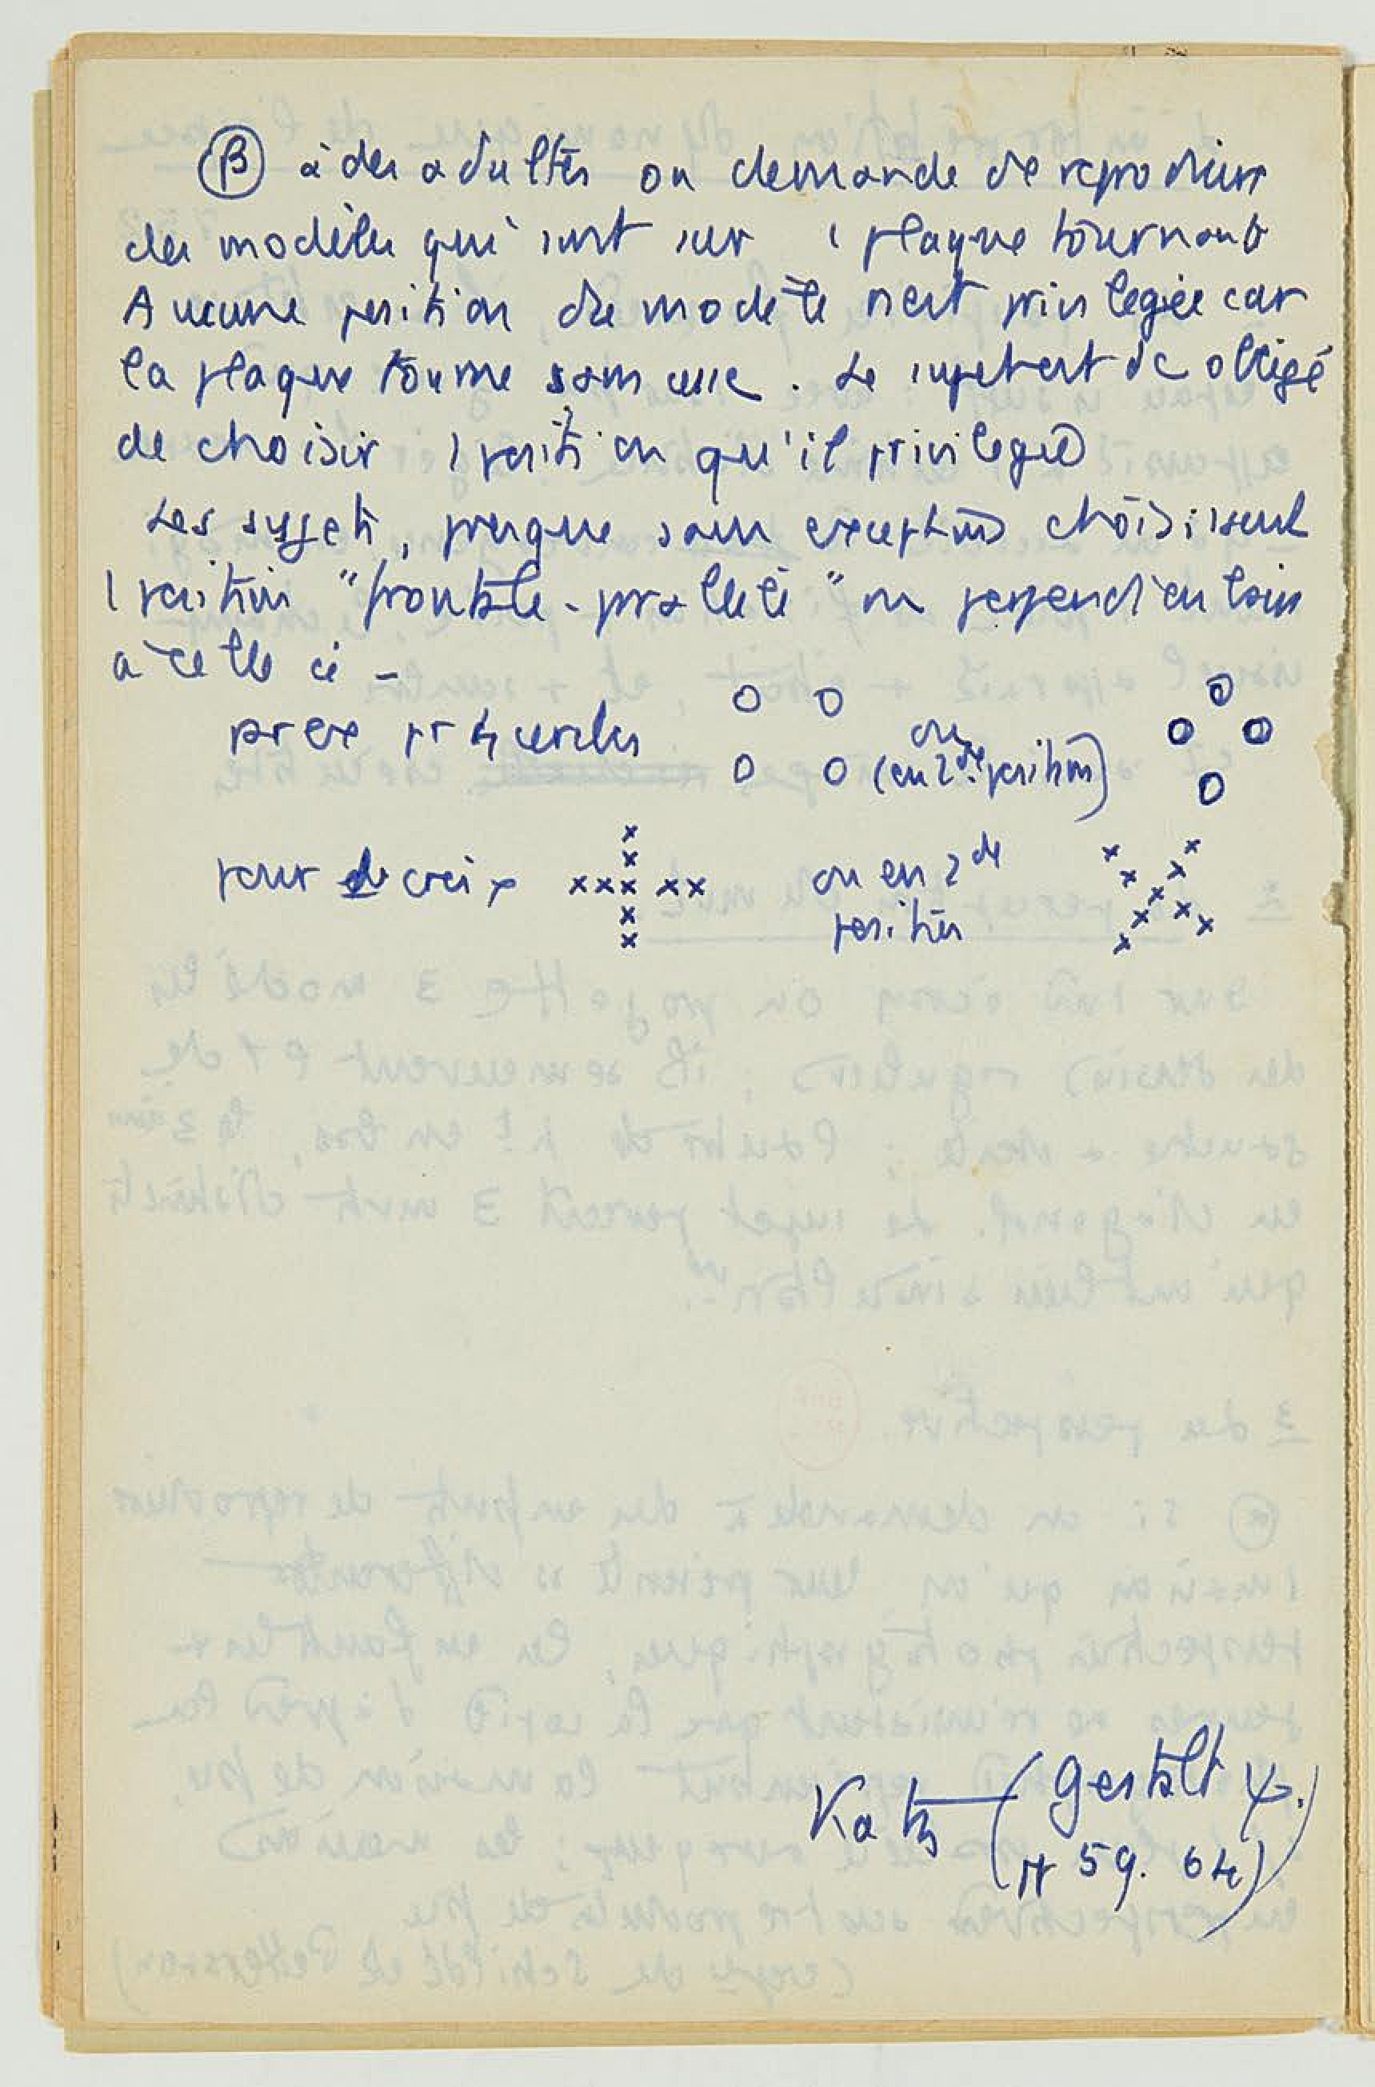 β à des adultes on demande de reproduire
des modèles qui sont sur 1 plaque tournant
Aucune position du modèle n'est privilegiée car
la plaque tourne sans cesse. Le sujet est dc obligé
de choisir 1 position qu'il privilegie
Les sujets, presque sans exception choisissent
1 position "frontale-parallele" ou perpendiculaire
à celle ci -
par ex pr 4 cercles o o ou o
o o
o o (en 2de position) o
pour des croix x
x
xxx xx ou en 2de x x
x position x x
x x
x x x
x x
Katz (Gestalt ψ.
pp 59. 64)